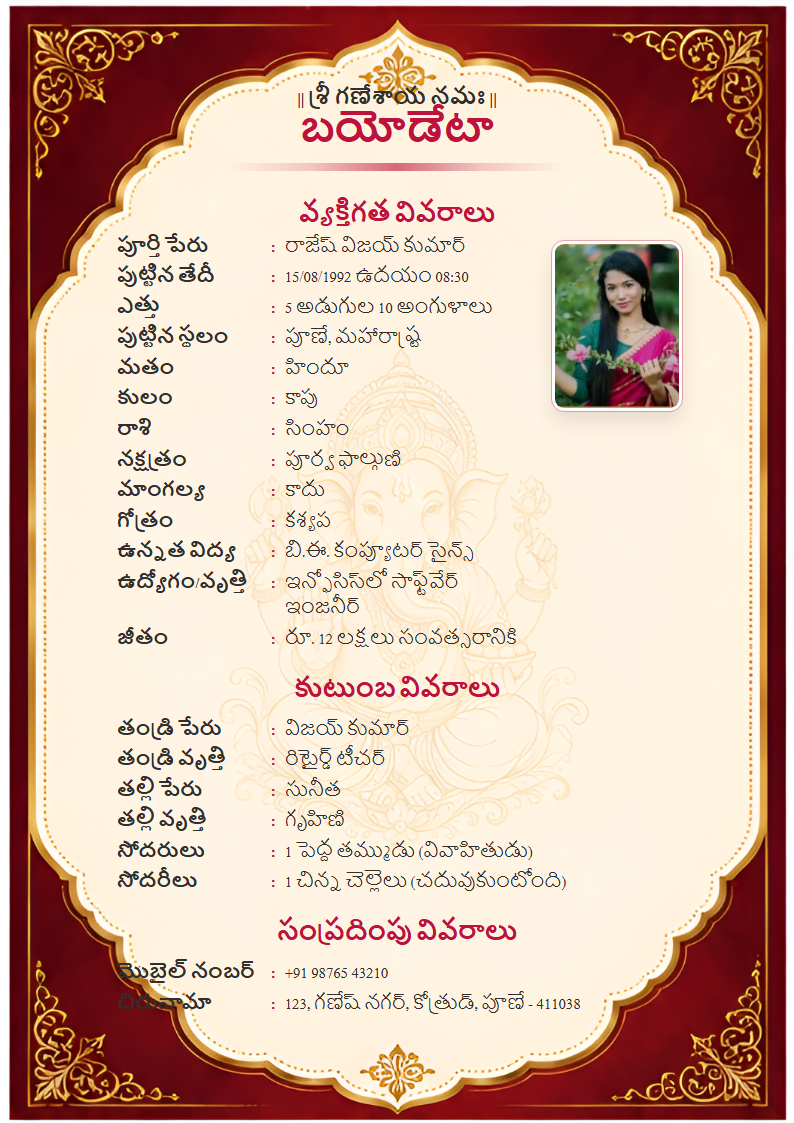 || శ్రీ గణేశాయ నమః ||
బయోడేటా
వ్యక్తిగత వివరాలు
పూర్తి పేరు : రాజేష్ విజయ్ కుమార్
పుట్టిన తేదీ : 15/08/1992 ఉదయం 08:30
ఎత్తు : 5 అడుగుల 10 అంగుళాలు
పుట్టిన స్థలం : పూణే, మహారాష్ట్ర
మతం : హిందూ
కులం : కాపు
రాశి : సింహం
నక్షత్రం : పూర్వ ఫాల్గుణి
మాంగల్య : కాదు
గోత్రం : కశ్యప
ఉన్నత విద్య : బి.ఈ. కంప్యూటర్ సైన్స్
ఉద్యోగం/వృత్తి : ఇన్ఫోసిస్‌లో సాఫ్ట్‌వేర్
ఇంజనీర్
జీతం : రూ. 12 లక్షలు సంవత్సరానికి
కుటుంబ వివరాలు
తండ్రి పేరు : విజయ్ కుమార్
తండ్రి వృత్తి : రిటైర్డ్ టీచర్
తల్లి పేరు : సునీత
తల్లి వృత్తి : గృహిణి
సోదరులు : 1 పెద్ద తమ్ముడు (వివాహితుడు)
సోదరీలు : 1 చిన్న చెల్లెలు (చదువుకుంటోంది)
సంప్రదింపు వివరాలు
మొబైల్ నంబర్ : +91 98765 43210
చిరునామా : 123, గణేష్ నగర్, కోత్రుడ్, పూణే - 411038